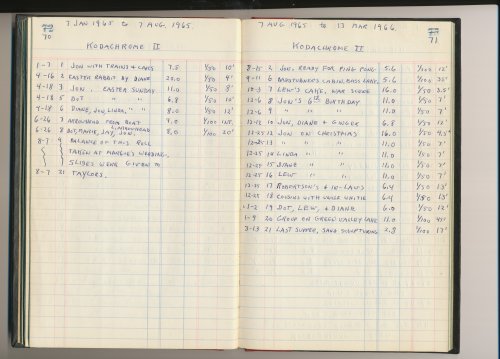 7 JAN 1965 to 7 AUG. 1965.
70
KODACHROME II
1-7 1 JON WITH TRAINS & CARS 7.5 1/50 10'
4-16 2 EASTER RABBIT BY DIANE 1/50 9'
4-18 3 JON, EASTER SUNDAY 11.0 1/50 8'
4-18 5 DOT " " 6.8 1/50 10'
4-18 6 DIANE, JON, LINDA, " " 8.0 1/50 12'
6-26 7 ARROWHEAD FROM BOAT 9.0 1/100 INF.
6-26 8 DOT, MARGIE, JAY, JON, L. ARROWHEAD 8.0 1/100 20'
8-7 9 BALANCE OF THIS ROLL
TAKEN AT MARGIE'S WEDDING,
SLIDES WERE GIVEN TO
8-7 21 TAYLORS.
7 AUG 1965 to 13 MAR 1966.
71
KODACHROME II
8-15 2 JON, READY FOR PING PONG 5.6 12'
9-11 6 CABIN, BASS LAKE 5.6 35'
10-3 7 LEW'S CAKE, WAR SCENE 16.0 1/50 3.5'
12-6 8 JON'S 6th BIRTHDAY 11.0 1/50 7'
12-6 9 " " " 11.0 1/50 7'
10 JON, DIANE & GWOEK 6.8 1/50 12'
12-25 12 JON ON CHRISTMAS 16.0 1/50
12-25 13 " " " 11.0 1/50 7'
12-25 14 LINDA " " 11.0 1/50 7'
12-25 15 DIANE " " 11.0 1/50 7'
12-25 16 LEW " " 11.0 1/50 7'
12-25 17 ROBERTSON'S & IN-LAWS 6.4 1/50 13'
12-25 18 COUSINS WITH UNCLE WHITIE 6.4 1/50 13'
19 DOT, LEW, & DIANE 6.0 1/50 12'
1-9 20 GROUP ON GREEN VALLEY LAKE 11.0 1/100
3-13 21 LAST SUPPER, SAND SCULPTURING 2.8 1/100 17'